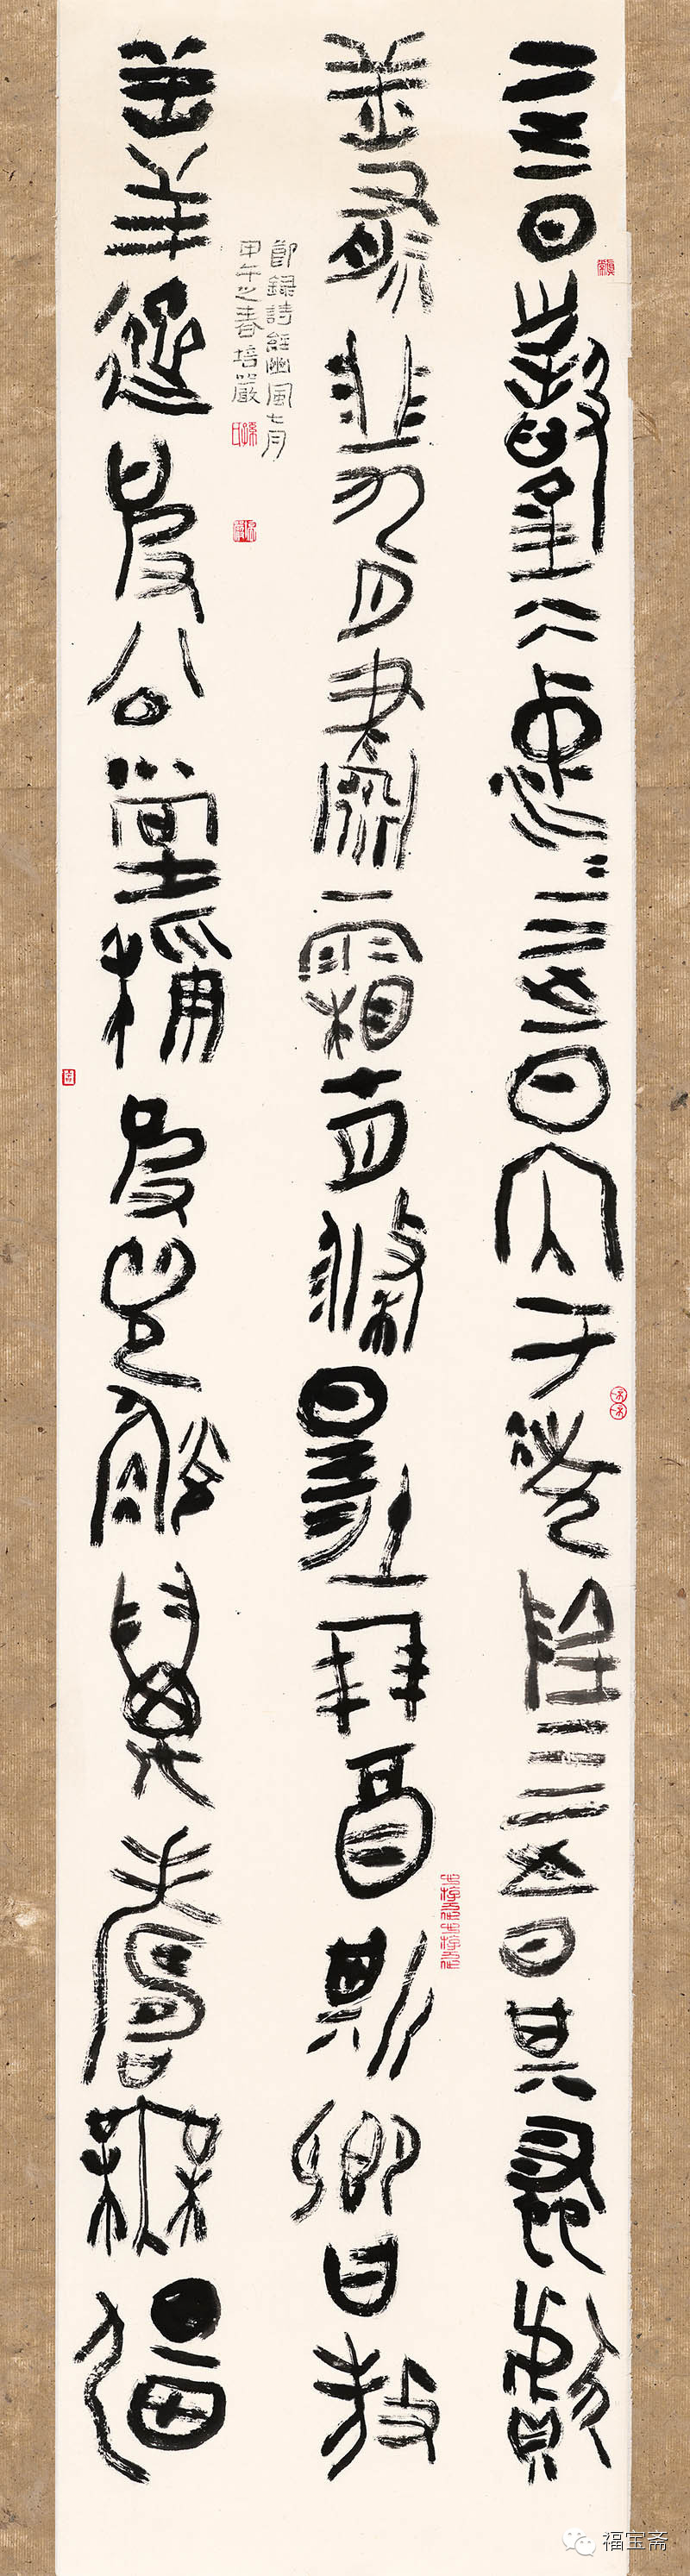 二之日鑿冰沖沖三之日納于凌陰四之日其蚤獻
羔祭韭九月肅霜十月滌場朋酒斯饗曰殺
羔羊躋彼公堂稱彼兕觥萬壽無疆
節錄詩經豳風七月
甲午之春培嚴
福宝斋